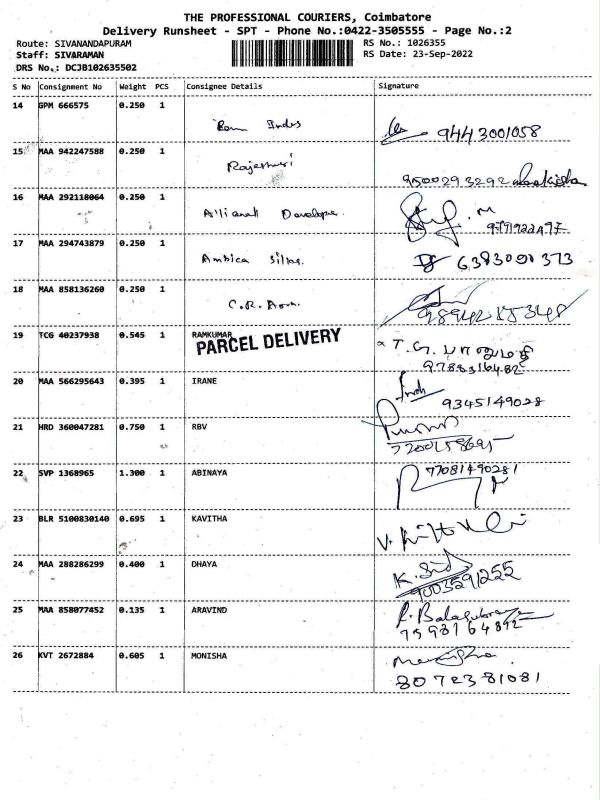 THE PROFESSIONAL COURIERS, Coimbatore
Delivery Runsheet - SPT - Phone No.:0422-3505555 - Page No.:2
Route: SIVANANDAPURAM RS No.: 1026355
Staff: SIVARAMAN RS Date: 23-Sep-2022
DRS No.: DCJB102635502
S No Consignment No Weight PCS Consignee Details Signature
14 GPM 666575 0.250 1
Ram Indus 9443001058
15 MAA 942247588 0.250 1
Rajeshwari 9500293292
16 MAA 292118064 0.250 1
Developer
17 MAA 294743879 0.250 1
Ambica 6383090373
18 MAA 858136260 0.250 1
C.R.
19 TCG 40237938 0.545 1 RAMKUMAR
PARCEL DELIVERY T. G. பானுமதி
9788316482
20 MAA 566295643 0.395 1 IRANE
9345149028
21 HRD 360047281 0.750 1 RBV
7200158695
22 SVP 1368965 1.300 1 ABINAYA 77081490281
23 BLR 5100830140 0.695 1 KAVITHA
24 MAA 288286299 0.400 1 DHAYA
9003591255
25 MAA 858077452 0.135 1 ARAVIND
7598164892
26 KVT 2672884 0.605 1 MONISHA
8072381081